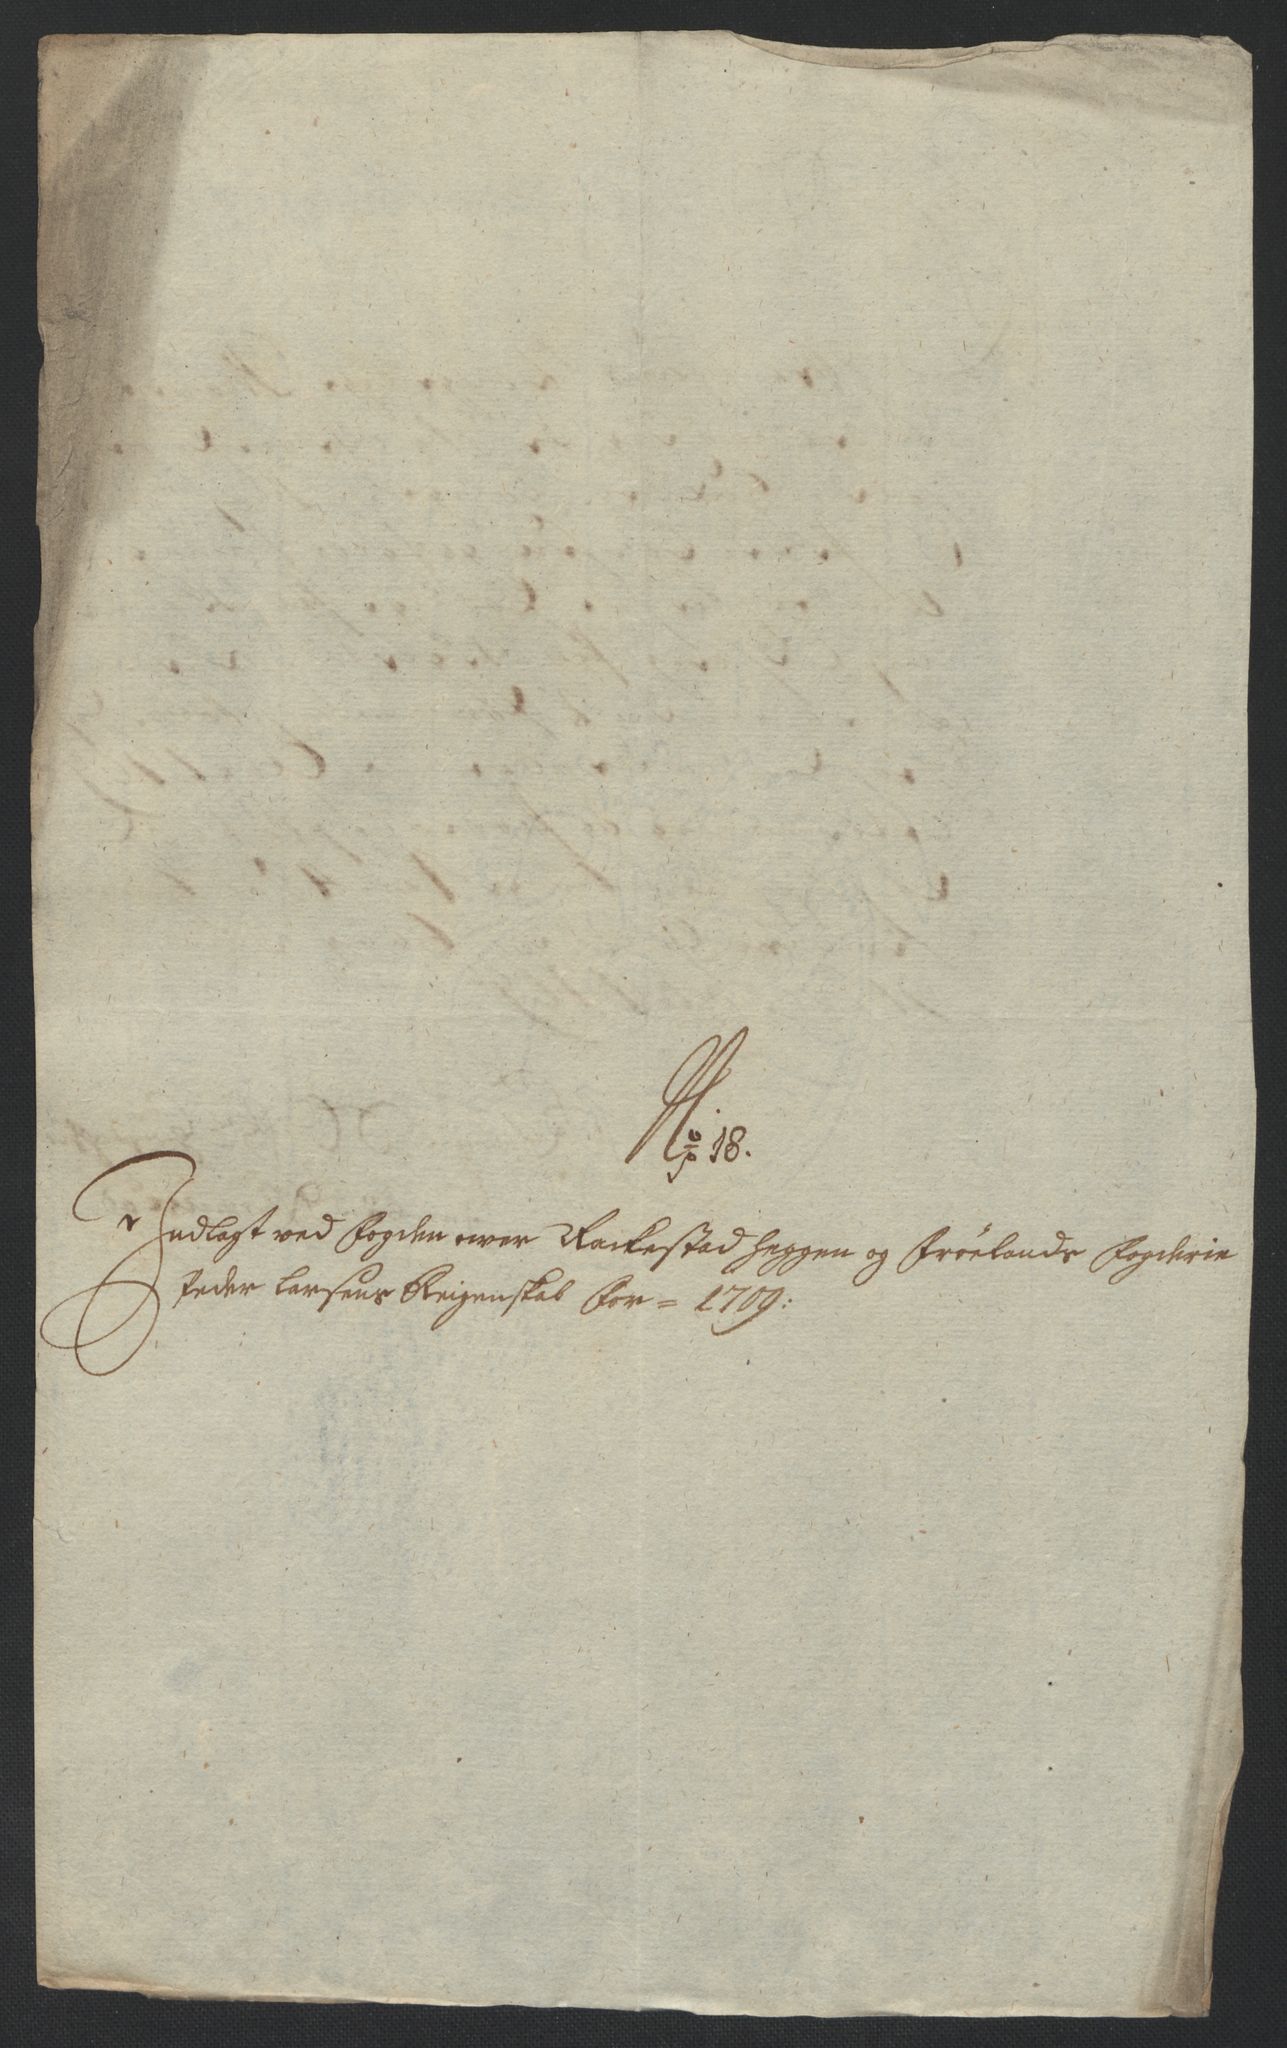 No 18.
Indlagt ved Fogden over Rackestad Heggen og Frøelands Fogderie
Peder Larsens Reigenskab for = 1709: